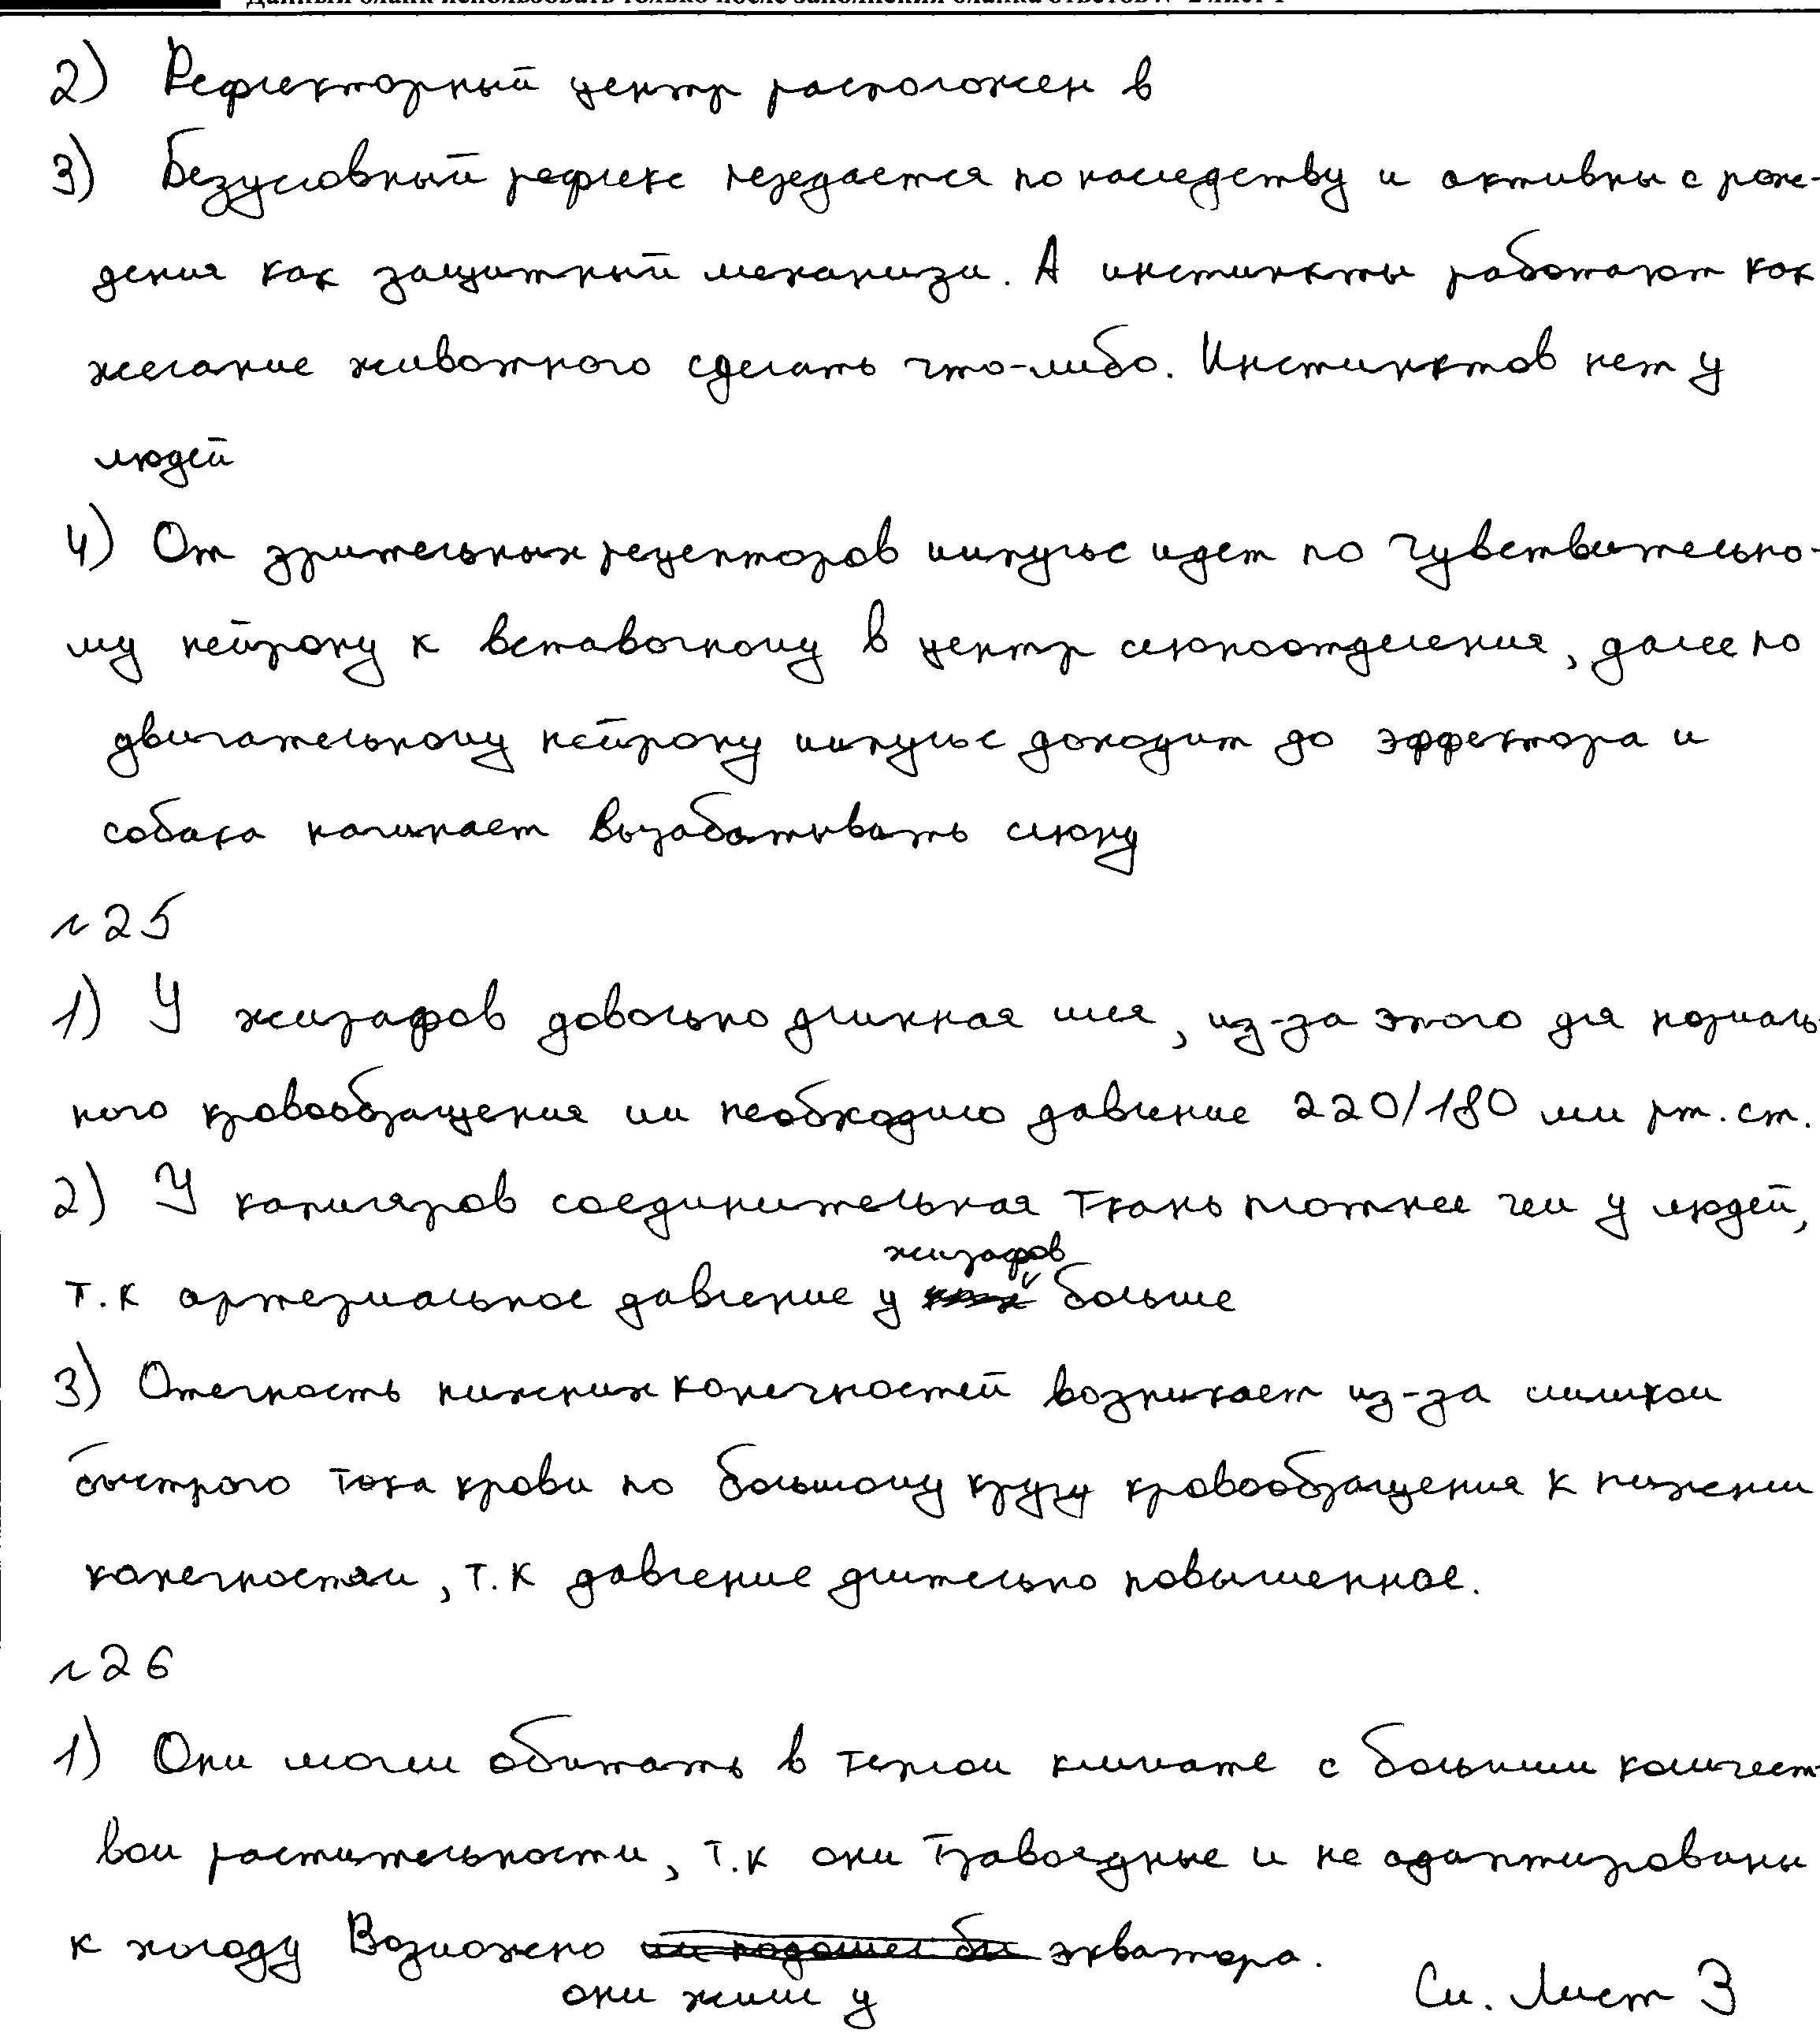 Данный бланк использовать только после заполнения бланка ответов № 2 лист 1
2) Рефлекторный центр расположен в
3) Безусловный рефлекс передается по наследству и активны с рож-
дения как защитный механизм. А инстинкты работают как
желание животного сделать что-либо. Инстинктов нет у
людей
4) От зрительных рецепторов импульс идет по чувствительно-
му нейрону к вставочному в центр слюноотделения, далее по
двигательному нейрону импульс доходит до эффектора и
собака начинает вырабатывать слюну
№25
1) У жирафов довольно длинная шея, из-за этого для нормаль-
ного кровообращения им необходимо давление 220/180 мм рт. ст.
2) У капиляров соединительная ткань плотнее чем у людей,
т.к артериальное давление у жирафов больше
3) Отечность нижних конечностей возникает из-за слишком
быстрого тока крови по большому кругу кровообращения к нижним
конечностям, т.к давление длительно повышенное.
№26
1) Они могли обитать в теплом климате с большим количест-
вом растительности, т.к они травоядные и не адаптированы
к холоду Возможно они жили у экватора.
См. Лист 3